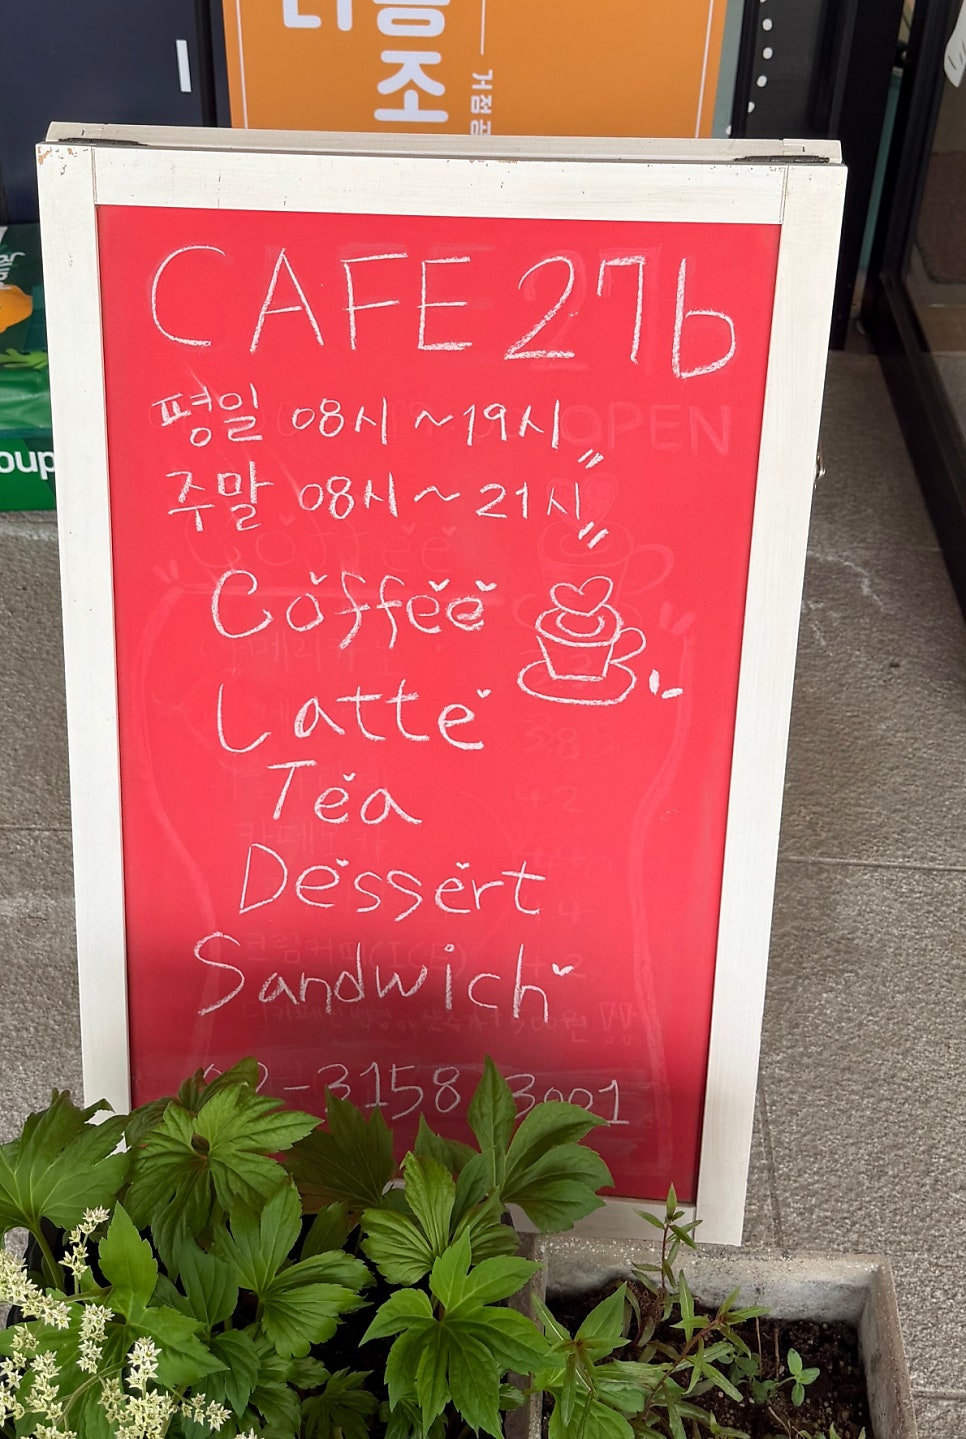 조
거점
CAFE 27b
평일 08시 ~ 19시
OPEN
주말 08시 ~ 21시
oup
Coffee
Latte
Tea
Dessert
Sandwich
02-3158-3001